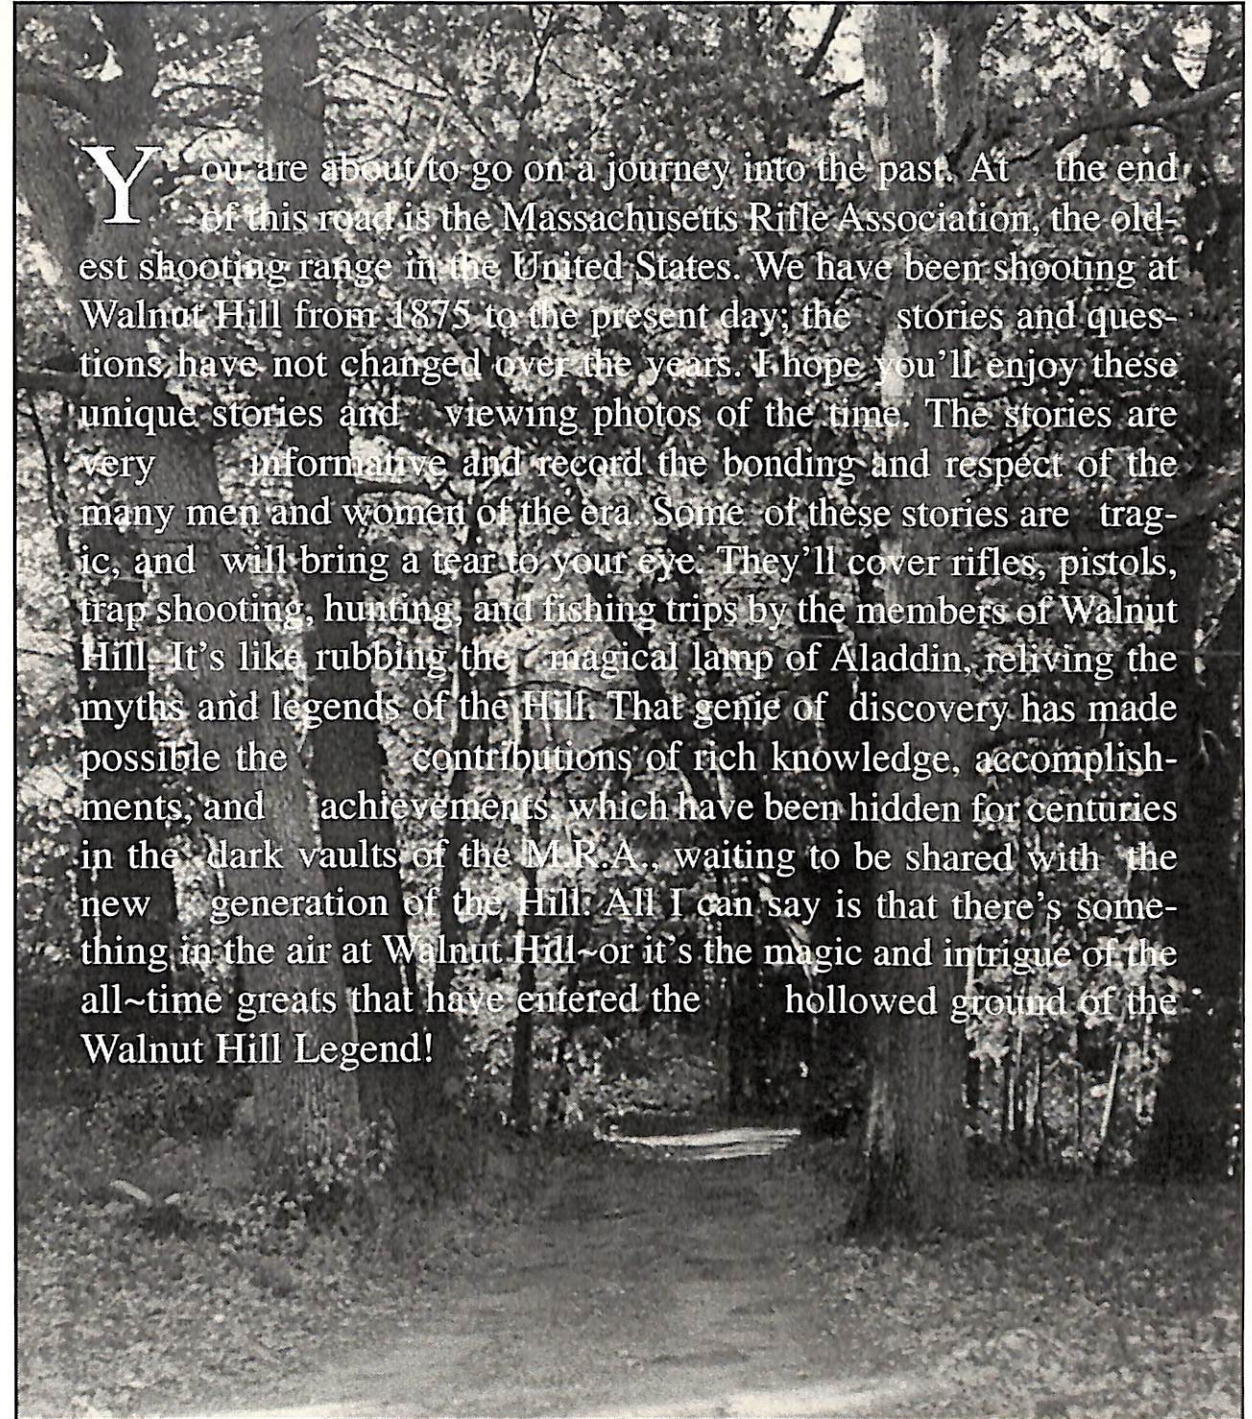 You are about to go on a journey into the past. At the end
of this road is the Massachusetts Rifle Association, the old-
est shooting range in the United States. We have been shooting at
Walnut Hill from 1875 to the present day; the stories and ques-
tions have not changed over the years. I hope you'll enjoy these
unique stories and viewing photos of the time. The stories are
very informative and record the bonding and respect of the
many men and women of the era. Some of these stories are trag-
ic, and will bring a tear to your eye. They'll cover rifles, pistols,
trap shooting, hunting, and fishing trips by the members of Walnut
Hill. It's like rubbing the magical lamp of Aladdin, reliving the
myths and legends of the Hill. That genie of discovery has made
possible the contributions of rich knowledge, accomplish-
ments, and achievements, which have been hidden for centuries
in the dark vaults of the M.R.A., waiting to be shared with the
new generation of the Hill. All I can say is that there's some-
thing in the air at Walnut Hill~or it's the magic and intrigue of the
all~time greats that have entered the hollowed ground of the
Walnut Hill Legend!